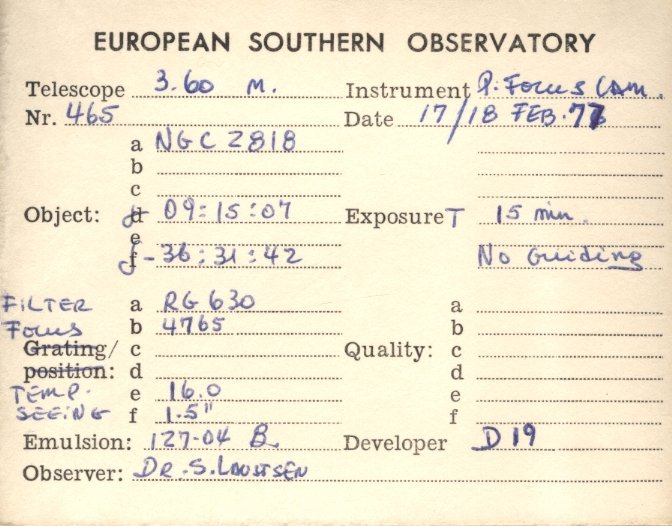 EUROPEAN SOUTHERN OBSERVATORY
Telescope 3.60 M. Instrument P. Focus Cam.
Nr. 465 Date 17/18 FEB. 77
a NGC 2818
b
c
Object: d 09:15:07 Exposure T 15 min.
e
f -36:31:42 No Guiding
FILTER a RG 630 a
Focus b 4765 b
Grating/ c Quality: c
position: d d
TEMP. e 16.0 e
SEEING f 1.5" f
Emulsion: 127-04 B Developer D19
Observer: DR. S. LAUSTSEN